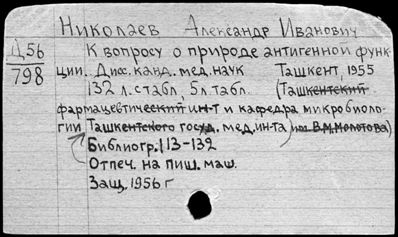 Николаев Александр Иванович
Д56
798
К вопросу о природе антигенной функ-
ции. Дисс. канд. мед. наук Ташкент, 1955
132 л. с табл. 5 л табл. (Ташкентский
фармацевтический ин-т и кафедра микробиоло-
гии Ташкентского госуд. мед. ин-та) им. В.М.Молотова)
Библиогр. 113-132
Отпеч. на пиш. маш.
Защ. 1956 г